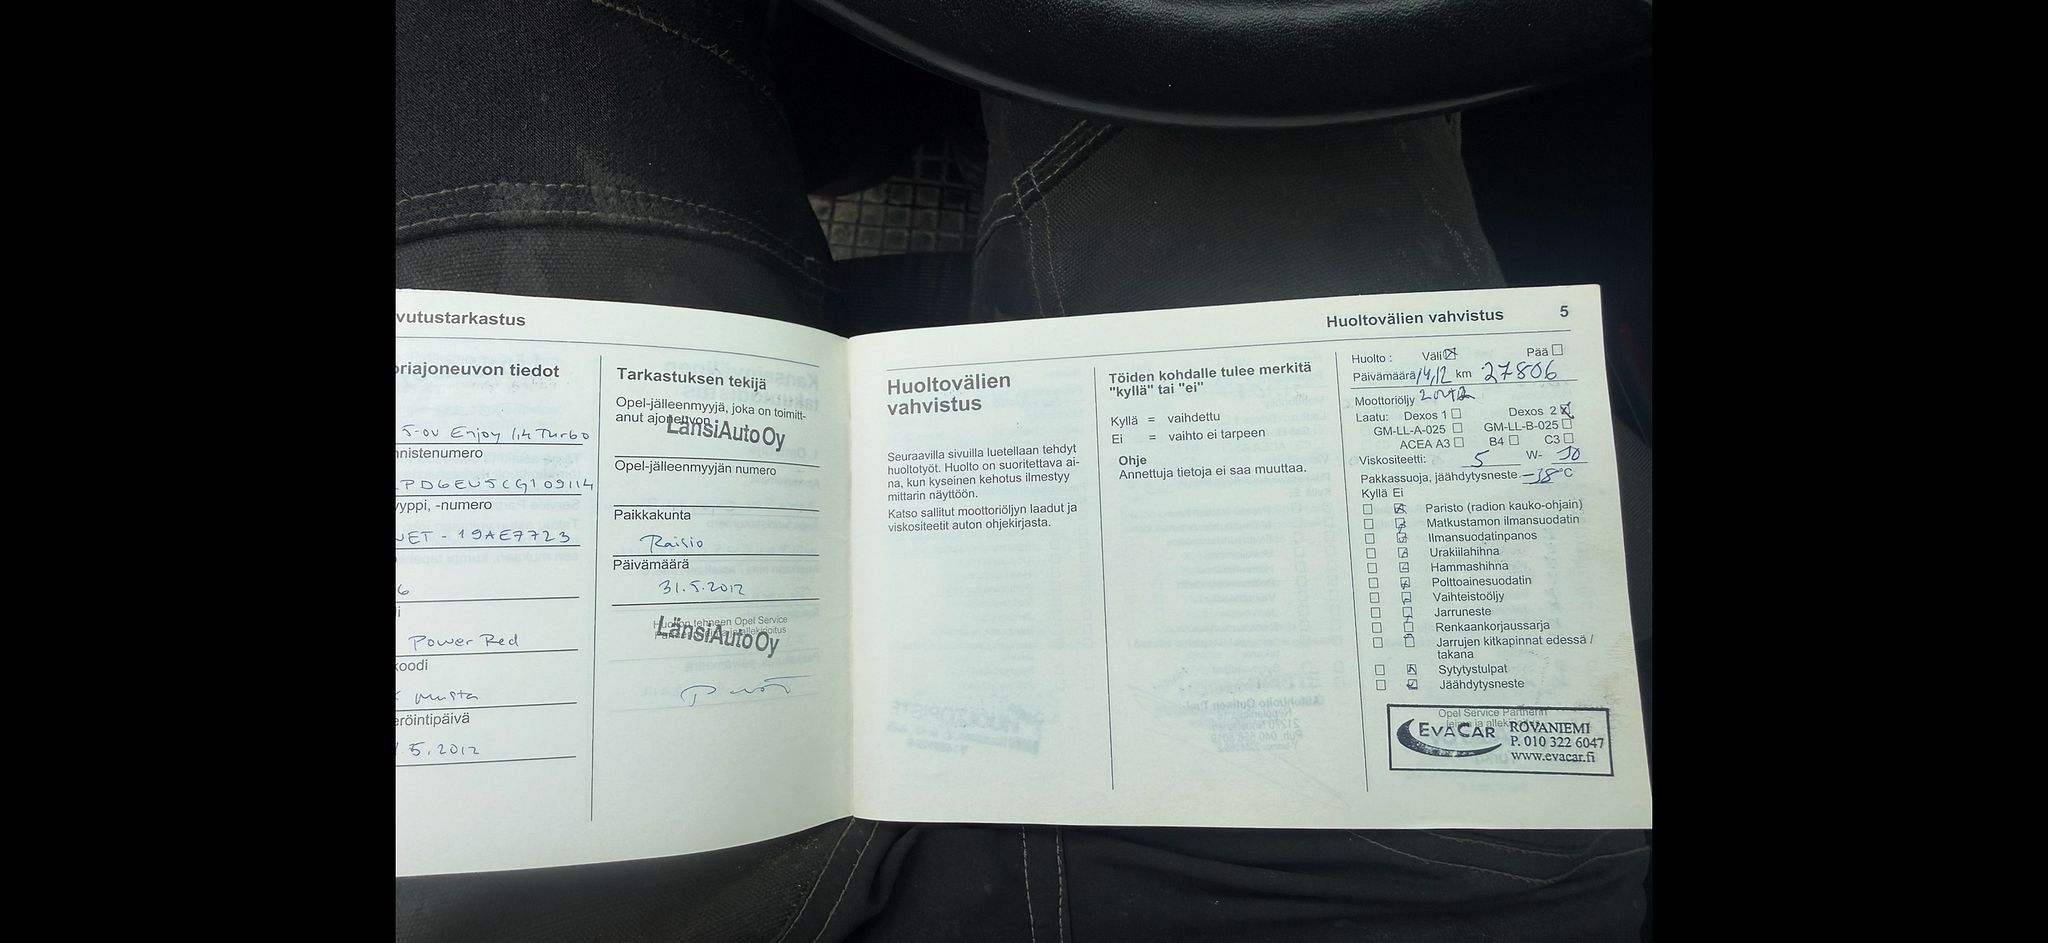 vutustarkastus
oriajoneuvon tiedot
5-ov Enjoy 1,4 Turbo
nnistenumero
yyppi, -numero
NET - 19AE7723
6
Power Red
koodi
musta
eröintipäivä
.5.2012
Tarkastuksen tekijä
Opel-jälleenmyyjä, joka on toimitt-
anut ajoneuvon
LänsiAuto Oy
Opel-jälleenmyyjän numero
Paikkakunta
Raisio
Päivämäärä
31.5.2012
Huollon tehneen Opel Service
LänsiAuto Oy
Huoltovälien vahvistus 5
Huoltovälien
vahvistus
Seuraavilla sivuilla luetellaan tehdyt
huoltotyöt. Huolto on suoritettava ai-
na, kun kyseinen kehotus ilmestyy
mittarin näyttöön.
Katso sallitut moottoriöljyn laadut ja
viskositeetit auton ohjekirjasta.
Töiden kohdalle tulee merkitä
"kyllä" tai "ei"
Kyllä = vaihdettu
Ei = vaihto ei tarpeen
Ohje
Annettuja tietoja ei saa muuttaa.
Huolto : Väli Pää
Päivämäärä 14/12 km 27806
Moottoriöljy 2012
Laatu: Dexos 1 Dexos 2
GM-LL-A-025 GM-LL-B-025
ACEA A3 B4 C3
Viskositeetti: 5 W- 30
Pakkassuoja, jäähdytysneste -38 °C
Kyllä Ei
Paristo (radion kauko-ohjain)
Matkustamon ilmansuodatin
Ilmansuodatinpanos
Urakiilahihna
Hammashihna
Polttoainesuodatin
Vaihteistoöljy
Jarruneste
Renkaankorjaussarja
Jarrujen kitkapinnat edessä /
takana
Sytytystulpat
Jäähdytysneste
Opel Service Partnerin
leima ja allekirjoitus
EVACAR ROVANIEMI
P. 010 322 6047
www.evacar.fi